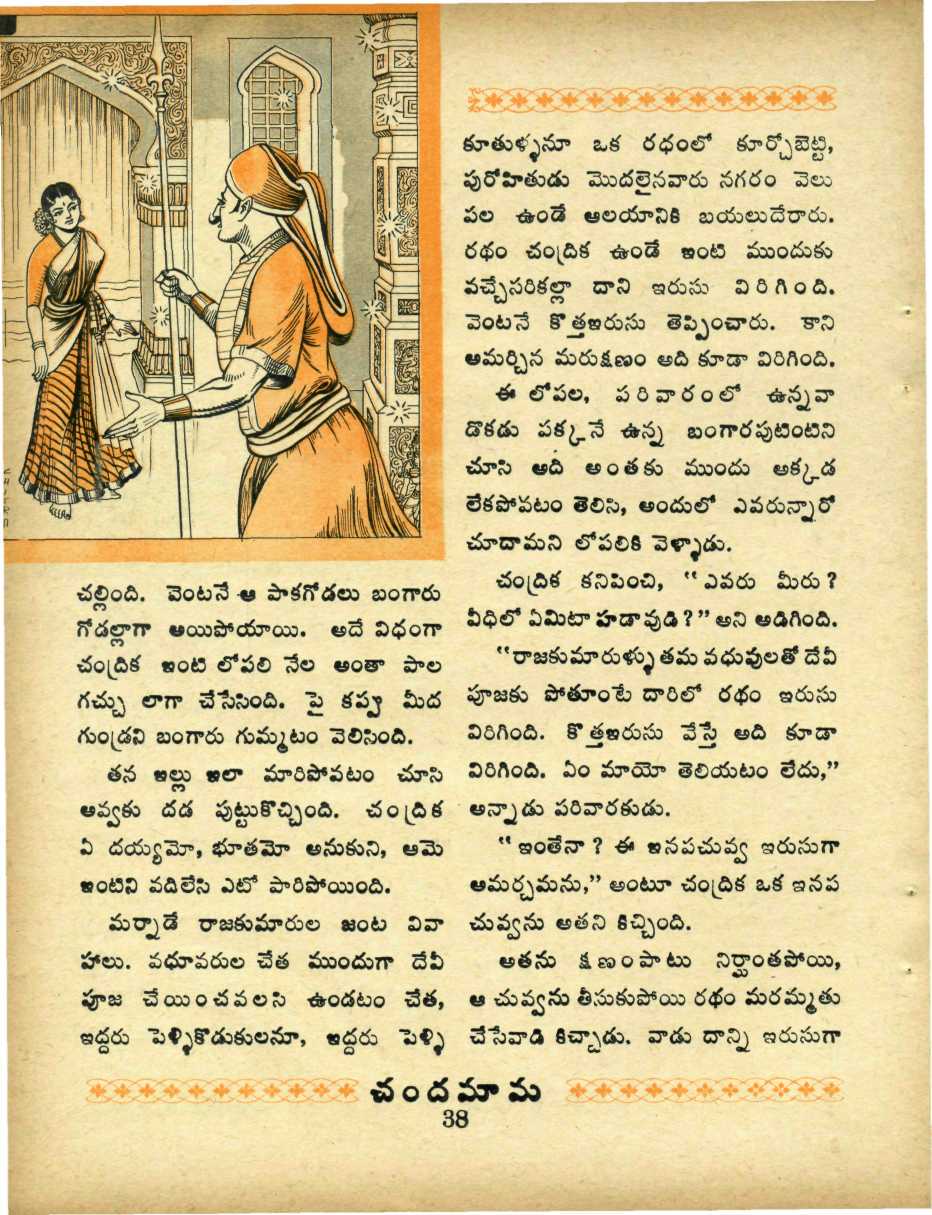 చల్లింది. వెంటనే ఆ పాకగోడలు బంగారు
గోడల్లాగా అయిపోయాయి. అదే విధంగా
చంద్రిక ఇంటి లోపలి నేల అంతా పాల
గచ్చు లాగా చేసేసింది. పై కప్పు మీద
గుండ్రని బంగారు గుమ్మటం వెలిసింది.
తన ఇల్లు ఇలా మారిపోవటం చూసి
అవ్వకు దడ పుట్టుకొచ్చింది. చంద్రిక
ఏ దయ్యమో, భూతమో అనుకుని, ఆమె
ఇంటిని వదిలేసి ఎటో పారిపోయింది.
మర్నాడే రాజకుమారుల జంట వివా
హాలు. వధూవరుల చేత ముందుగా దేవీ
పూజ చేయించవలసి ఉండటం చేత,
ఇద్దరు పెళ్ళికొడుకులనూ, ఇద్దరు పెళ్ళి
కూతుళ్ళనూ ఒక రధంలో కూర్చోబెట్టి,
పురోహితుడు మొదలైనవారు నగరం వెలు
పల ఉండే ఆలయానికి బయలుదేరారు.
రథం చంద్రిక ఉండే ఇంటి ముందుకు
వచ్చేసరికల్లా దాని ఇరుసు విరిగింది.
వెంటనే కొత్తఇరుసు తెప్పించారు. కాని
అమర్చిన మరుక్షణం అది కూడా విరిగింది.
ఈ లోపల, పరివారంలో ఉన్నవా
డొకడు పక్కనే ఉన్న బంగారపుటింటిని
చూసి అది అంతకు ముందు అక్కడ
లేకపోవటం తెలిసి, అందులో ఎవరున్నారో
చూదామని లోపలికి వెళ్ళాడు.
చంద్రిక కనిపించి, “ఎవరు మీరు?
వీధిలో ఏమిటా హడావుడి?” అని అడిగింది.
“రాజకుమారుళ్ళు తమ వధువులతో దేవీ
పూజకు పోతూంటే దారిలో రథం ఇరుసు
విరిగింది. కొత్తఇరుసు వేస్తే అది కూడా
విరిగింది. ఏం మాయో తెలియటం లేదు,”
అన్నాడు పరివారకుడు.
“ఇంతేనా? ఈ ఇనపచువ్వ ఇరుసుగా
అమర్చమను,” అంటూ చంద్రిక ఒక ఇనప
చువ్వను అతని కిచ్చింది.
అతను క్షణంపాటు నిర్ఘాంతపోయి,
ఆ చువ్వను తీసుకుపోయి రథం మరమ్మతు
చేసేవాడి కిచ్చాడు. వాడు దాన్ని ఇరుసుగా
చందమామ
38